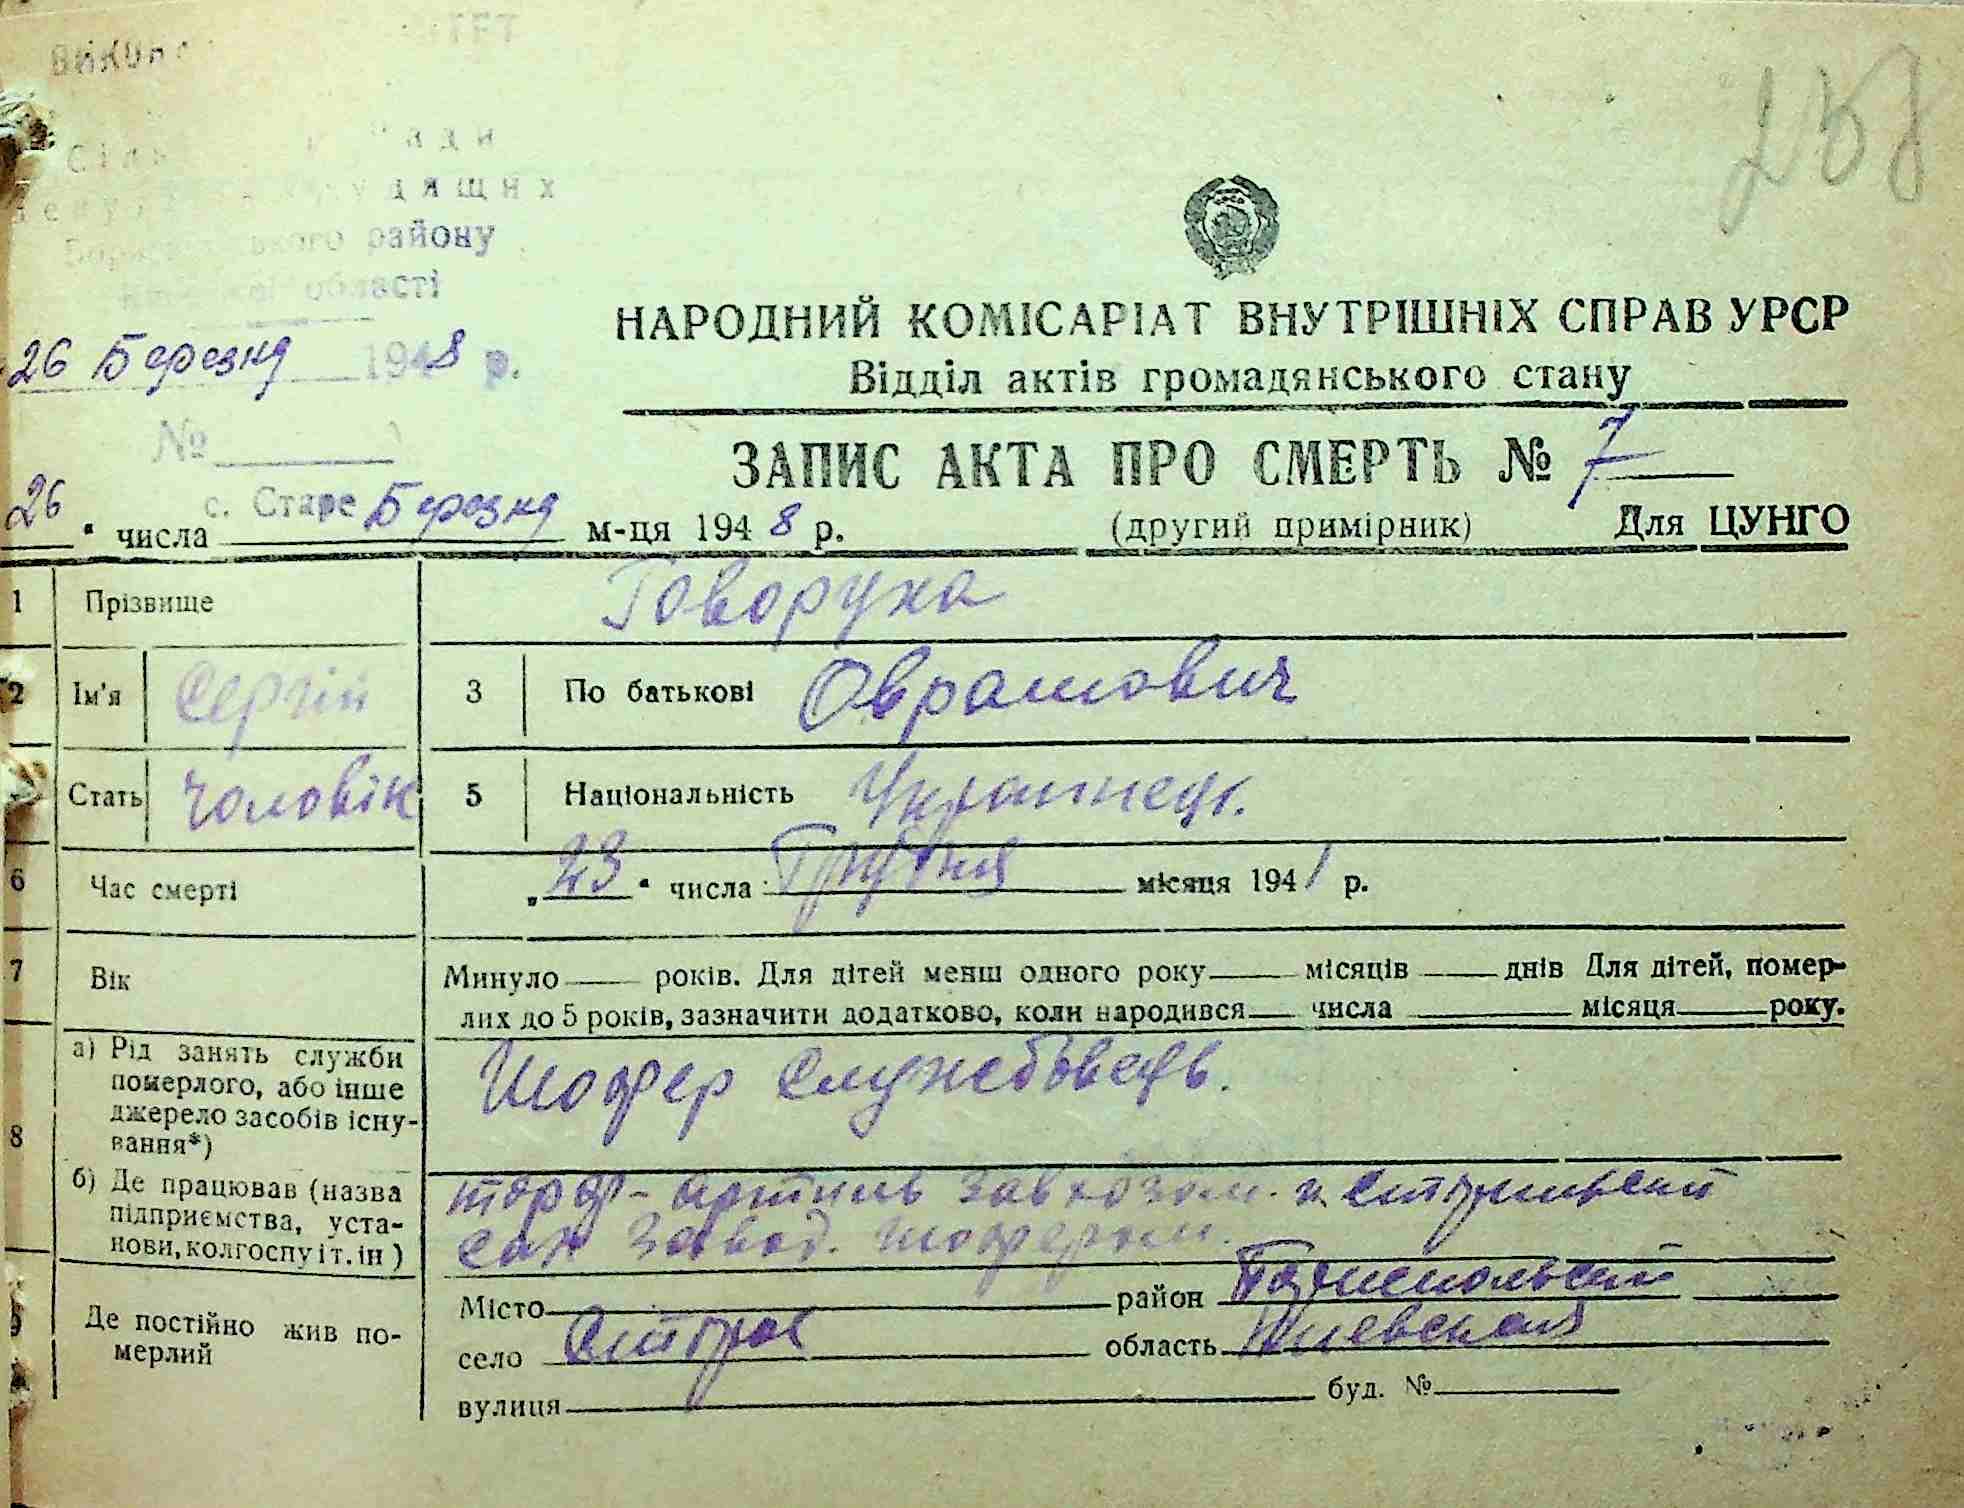 258
району
області
26 Березня 1948 р.
№
с. Старе
НАРОДНИЙ КОМІСАРІАТ ВНУТРІШНІХ СПРАВ УРСР
Відділ актів громадянського стану
ЗАПИС АКТА ПРО СМЕРТЬ № 7
26 " числа Березня м-ця 1948 р. (другий примірник) Для ЦУНГО
1 Прізвище Говоруха
2 Ім'я Сергій 3 По батькові Оврамович
Стать чоловік 5 Національність Українець.
6 Час смерті „23" числа Грудня місяця 1941 р.
7 Вік Минуло років. Для дітей менш одного року місяців днів Для дітей, помер-
лих до 5 років, зазначити додатково, коли народився числа місяця року.
8 а) Рід занять служби
померлого, або інше
джерело засобів існу-
вання*)
Шофер службовець.
б) Де працював (назва
підприємства, уста-
нови, колгоспу і т. ін)
торф-артиль завхозом. и
сах завод. шофером.
9 Де постійно жив по-
мерлий
Місто район Бориспольский
село Старе область Киевская
вулиця буд. №